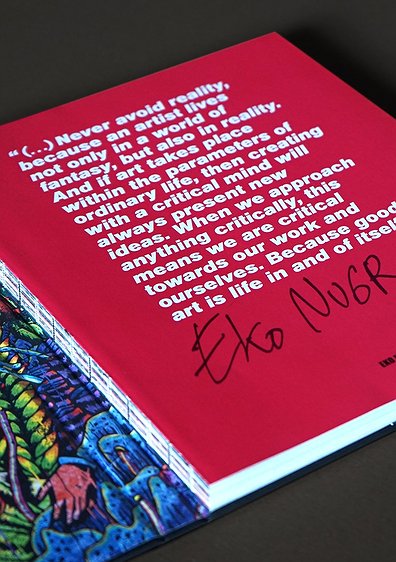 “(...) Never avoid reality,
because an artist lives
not only in a world of
fantasy, but also in reality.
And if art takes place
within the parameters of
ordinary life, then creating
with a critical mind will
always present new
ideas. When we approach
anything critically, this
means we are critical
towards our work and
ourselves. Because good
art is life in and of itself
Eko NUGR
EKO